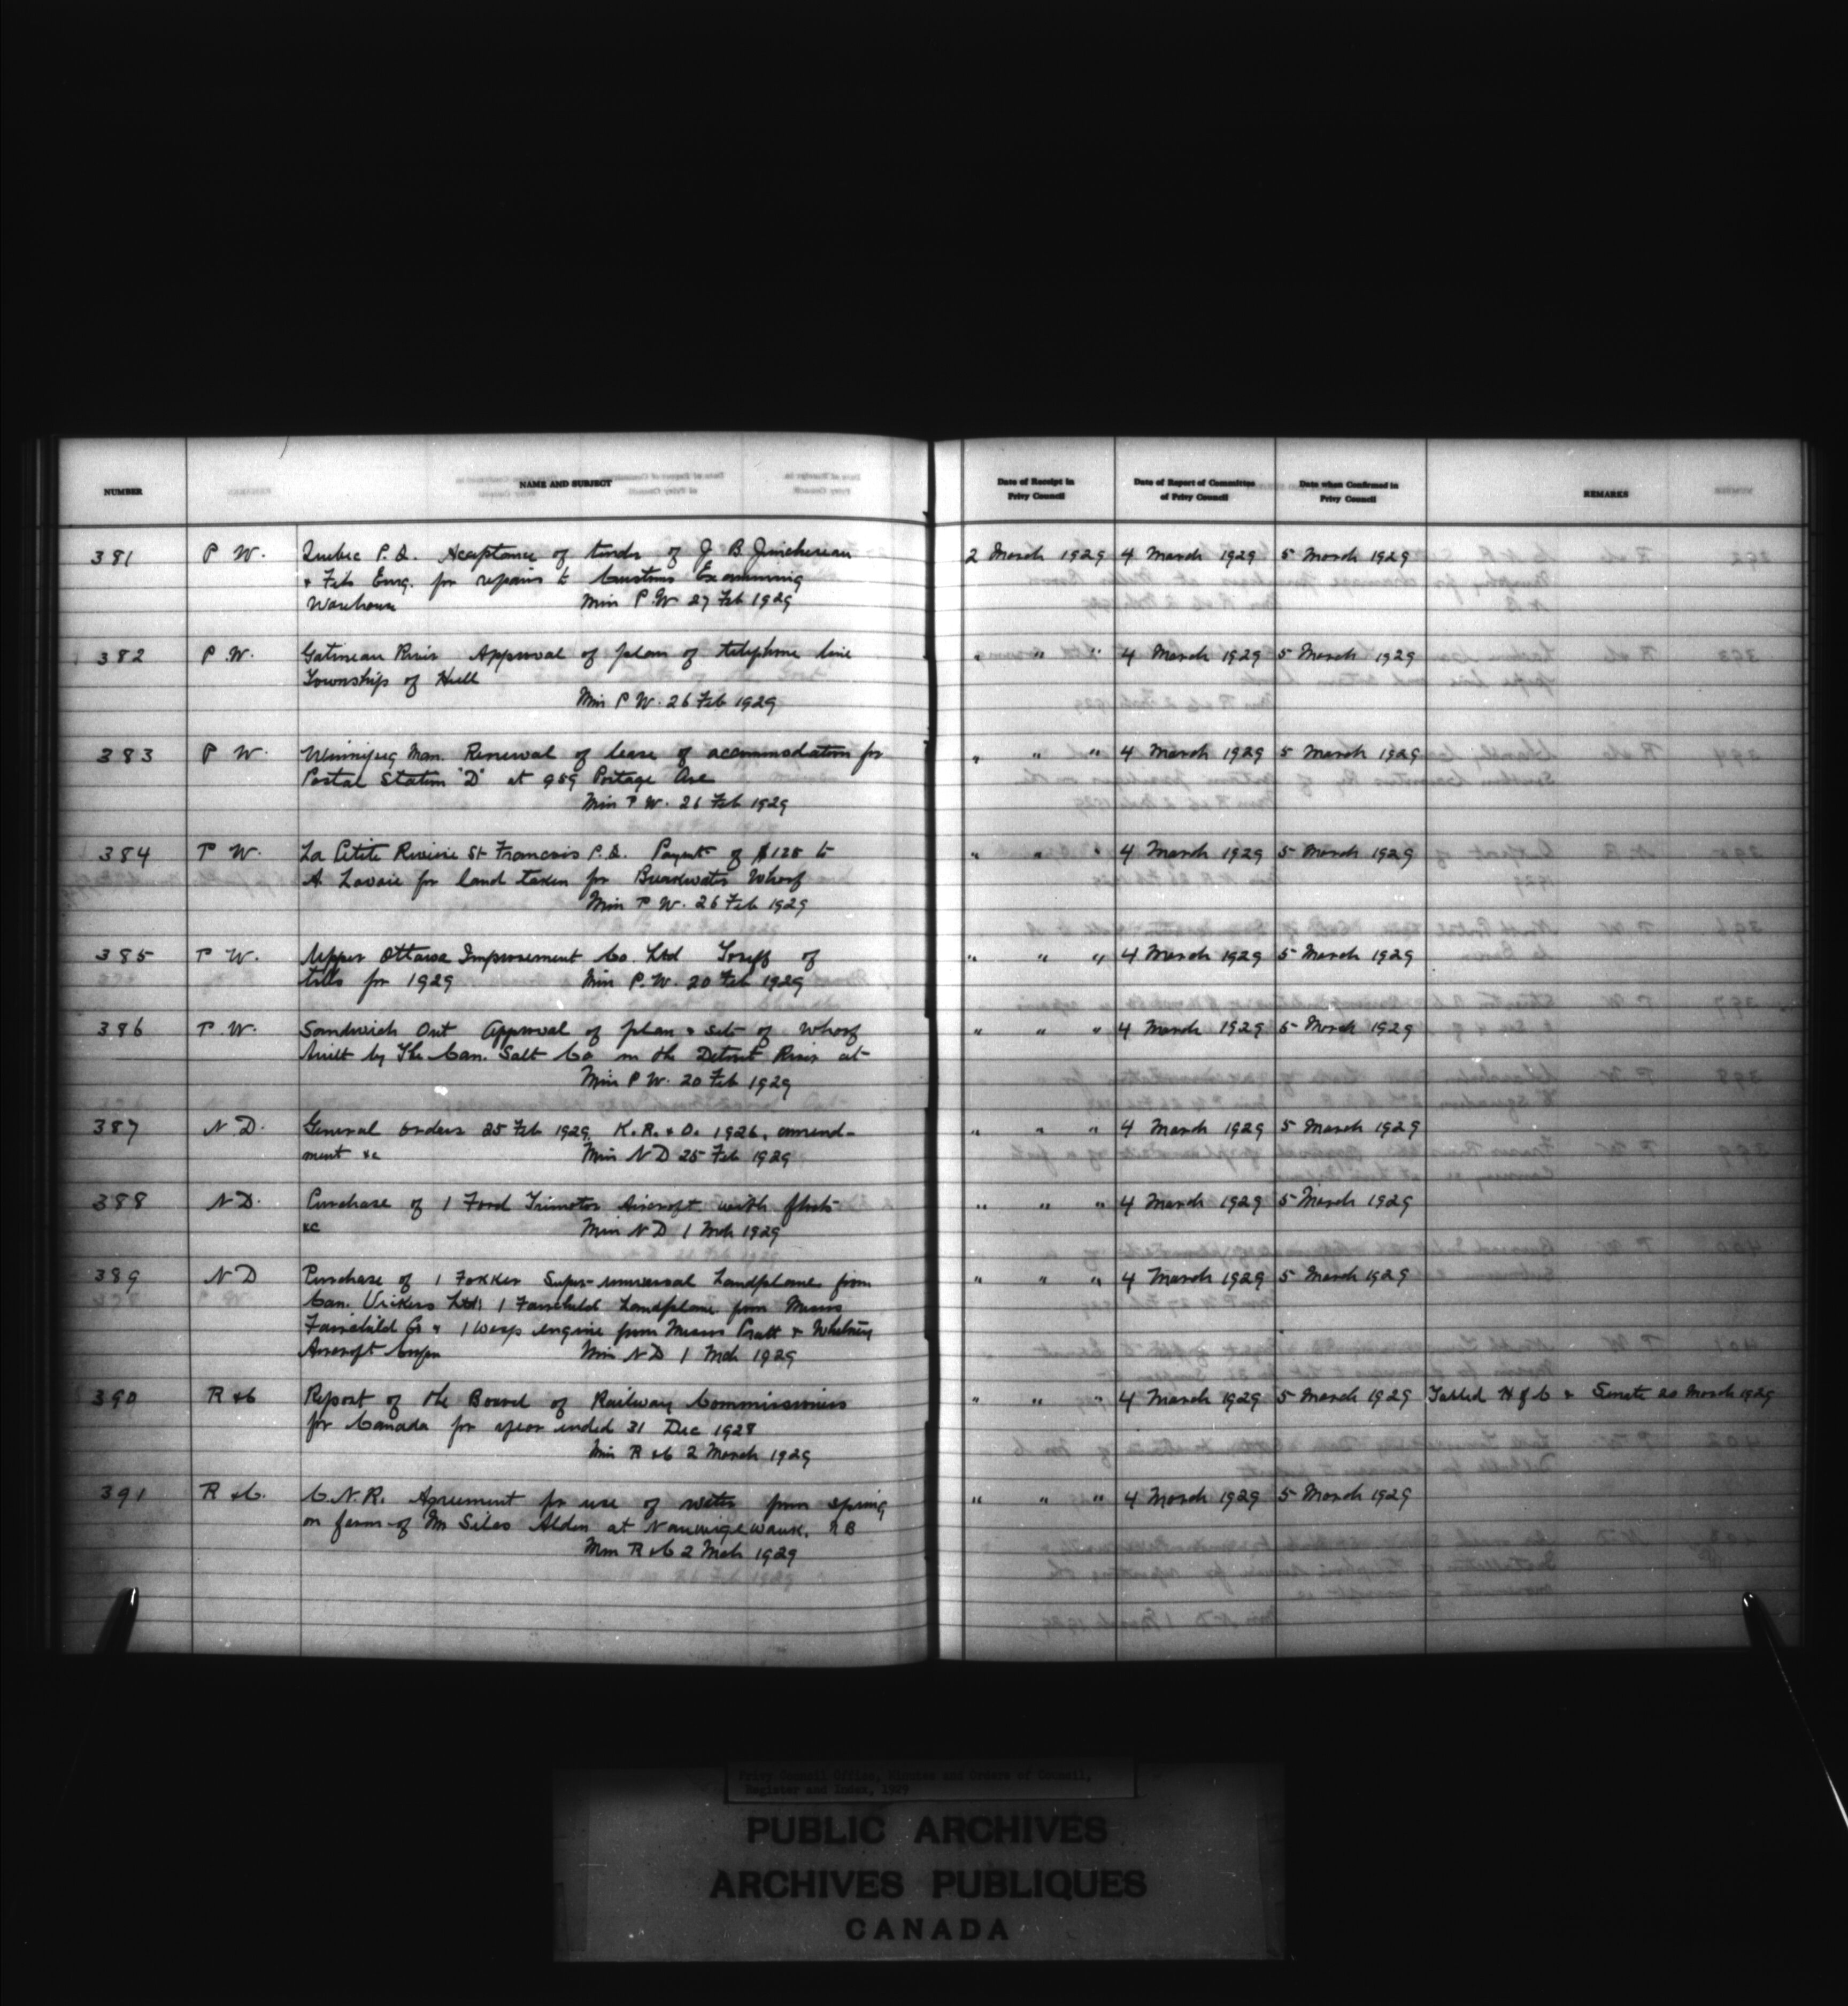 NUMBER NAME AND SUBJECT Date of Receipt in Privy Council Date of Report of Committee of Privy Council Date when Confirmed in Privy Council REMARKS
381 P W. Quebec P.Q. Acceptance of tender of J B Jinchereau 2 March 1929 4 March 1929 5 March 1929
& Fils Enrg. for repairs to Customs Examining
Warehouse Min P W 27 Feb 1929
382 P.W. Gatineau River Approval of plan of telephone line " " " 4 March 1929 5 March 1929
Township of Hull
Min P W. 26 Feb 1929
383 P W. Winnipeg Man. Renewal of lease of accommodation for " " " 4 March 1929 5 March 1929
Postal Station "D" at 959 Portage Ave
Min P W. 26 Feb 1929
384 P W. La Petite Riviere St Francois P.Q. Payment of $125 to " " " 4 March 1929 5 March 1929
A. Lavoie for land taken for Breakwater Wharf
Min P W. 26 Feb 1929
385 P W. Upper Ottawa Improvement Co. Ltd Tariff of " " " 4 March 1929 5 March 1929
tolls for 1929 Min P.W. 20 Feb 1929
386 P.W. Sandwich Ont Approval of plan & site of Wharf " " " 4 March 1929 5 March 1929
built by The Can. Salt Co in the Detroit River at
Min P W. 20 Feb 1929
387 N D. General Orders 25 Feb 1929. K.R. & O. 1926, amend- " " " 4 March 1929 5 March 1929
ment &c Min N D 25 Feb 1929
388 N D. Purchase of 1 Ford Trimotor Aircraft with floats " " " 4 March 1929 5 March 1929
&c Min N D 1 Mch 1929
389 N D Purchase of 1 Fokker Super-universal Landplane from " " " 4 March 1929 5 March 1929
Can. Vickers Ltd; 1 Fairchild Landplane from Messrs
Fairchild Co & 1 Wasp engine from Messrs Pratt & Whitney
Aircraft Min N D 1 Mch 1929
390 R & C Report of the Board of Railway Commissioners " " " 4 March 1929 5 March 1929 Tabled H of C & Senate 20 March 1929
for Canada for year ended 31 Dec 1928
Min R & C 2 March 1929
391 R & C. C.N.R. Agreement for use of water from spring " " " 4 March 1929 5 March 1929
on farm of Mr Silas Alden at Nauwigewauk, N B
Min R & C 2 Mch 1929
Privy Council Office, Minutes and Orders of Council,
Register and Index, 1929
PUBLIC ARCHIVES
ARCHIVES PUBLIQUES
CANADA